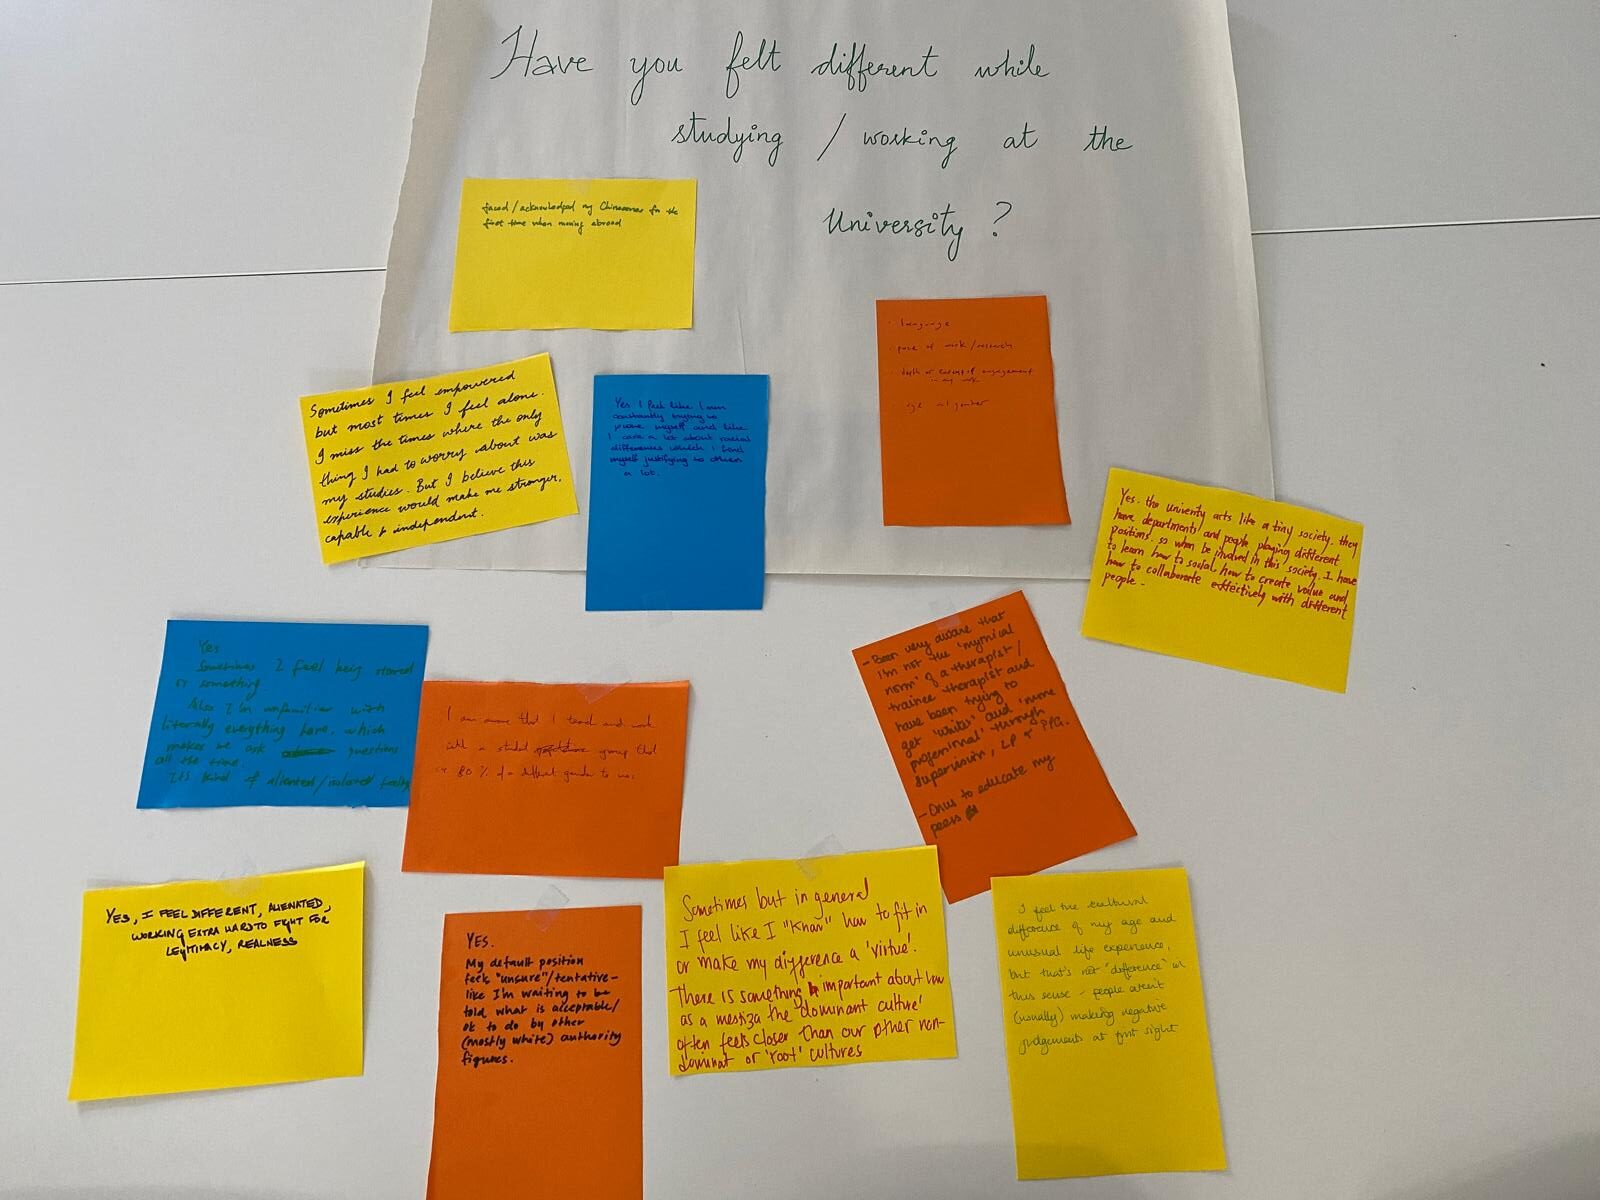 Have you felt different while
studying / working at the
University ?
faced/acknowledged my Chineseness for the
first time when moving abroad
· language
· pace of work/research
· depth or extent of engagement
in my work
· age and gender
Sometimes I feel empowered
but most times I feel alone.
I miss the times where the only
thing I had to worry about was
my studies. But I believe this
experience would make me stronger,
capable & independent.
Yes I feel like I am
constantly trying to
prove myself and like
I care a lot about racial
differences which I find
myself justifying to others
a lot.
Yes. the univenty acts like a tiny society. they
have departments and people playing different
positions. so when be involved in this society. I have
to learn how to social how to create value and
how to collaborate effectively with different
people.
Yes
Sometimes I feel being stared
or something.
Also I'm unfamiliar with
literally everything here, which
makes me ask questions
all the time.
It's kind of aliented/isolated
I am aware that I teach and work
with a student group that
is 80 % of a different gender to me.
- Been very aware that
I'm not the 'mythical
norm' of a therapist/
trainee therapist and
have been trying to
get 'whiter' and 'more
professional' through
supervision, LP & PPG.
- Onus to educate my
peers
YES, I FEEL DIFFERENT, ALIENATED,
WORKING EXTRA HARD TO FIGHT FOR
LEGITIMACY, REALNESS
YES.
My default position
feels "unsure"/tentative-
like I'm waiting to be
told what is acceptable/
ok to do by other
(mostly white) authority
figures.
Sometimes but in general
I feel like I "know" how to fit in
or make my difference a 'virtue'.
There is something important about how
as a mestiza the 'dominant culture'
often feels closer than our other non-
dominat or 'root' cultures
I feel the cultural
difference of my age and
unusual life experience,
but that's not "difference" in
this sense - people aren't
(usually) making negative
judgements at first sight